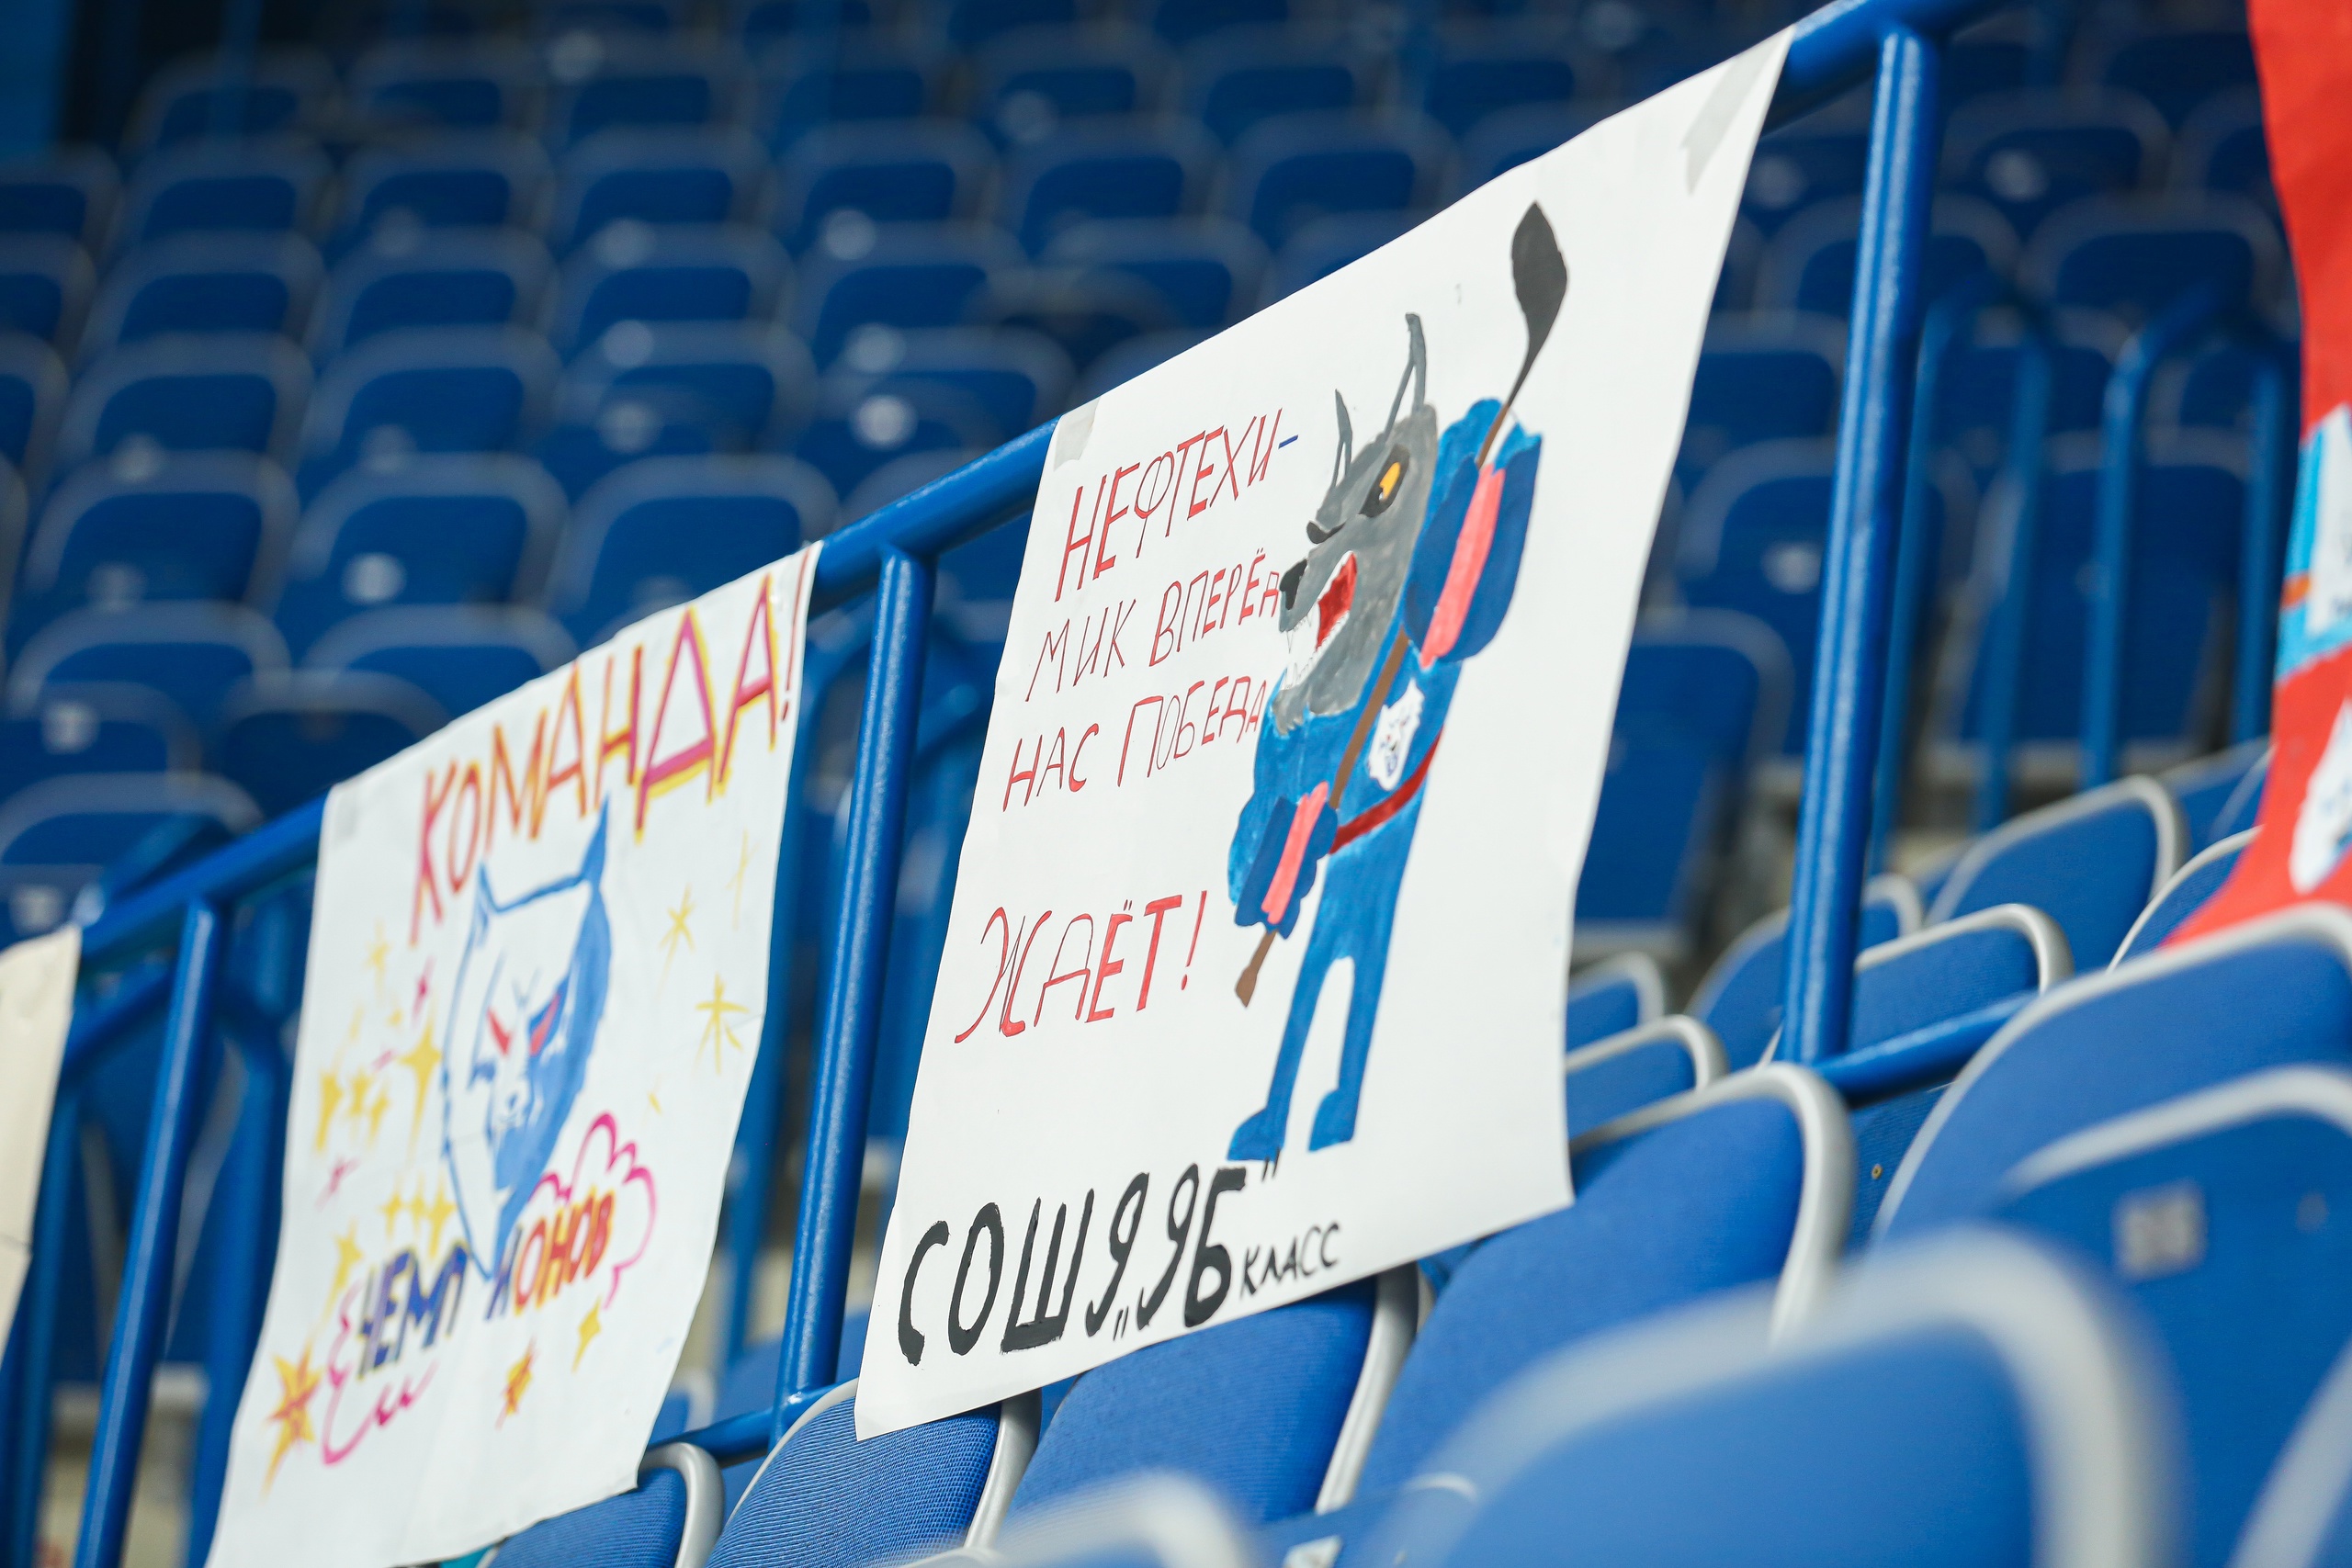 КОМАНДА!
ЧЕМПИОНОВ
НЕФТЕХИ-
МИК ВПЕРЁД
НАС ПОБЕДА
ЖДЁТ!
СОШ 9 „9Б" КЛАСС